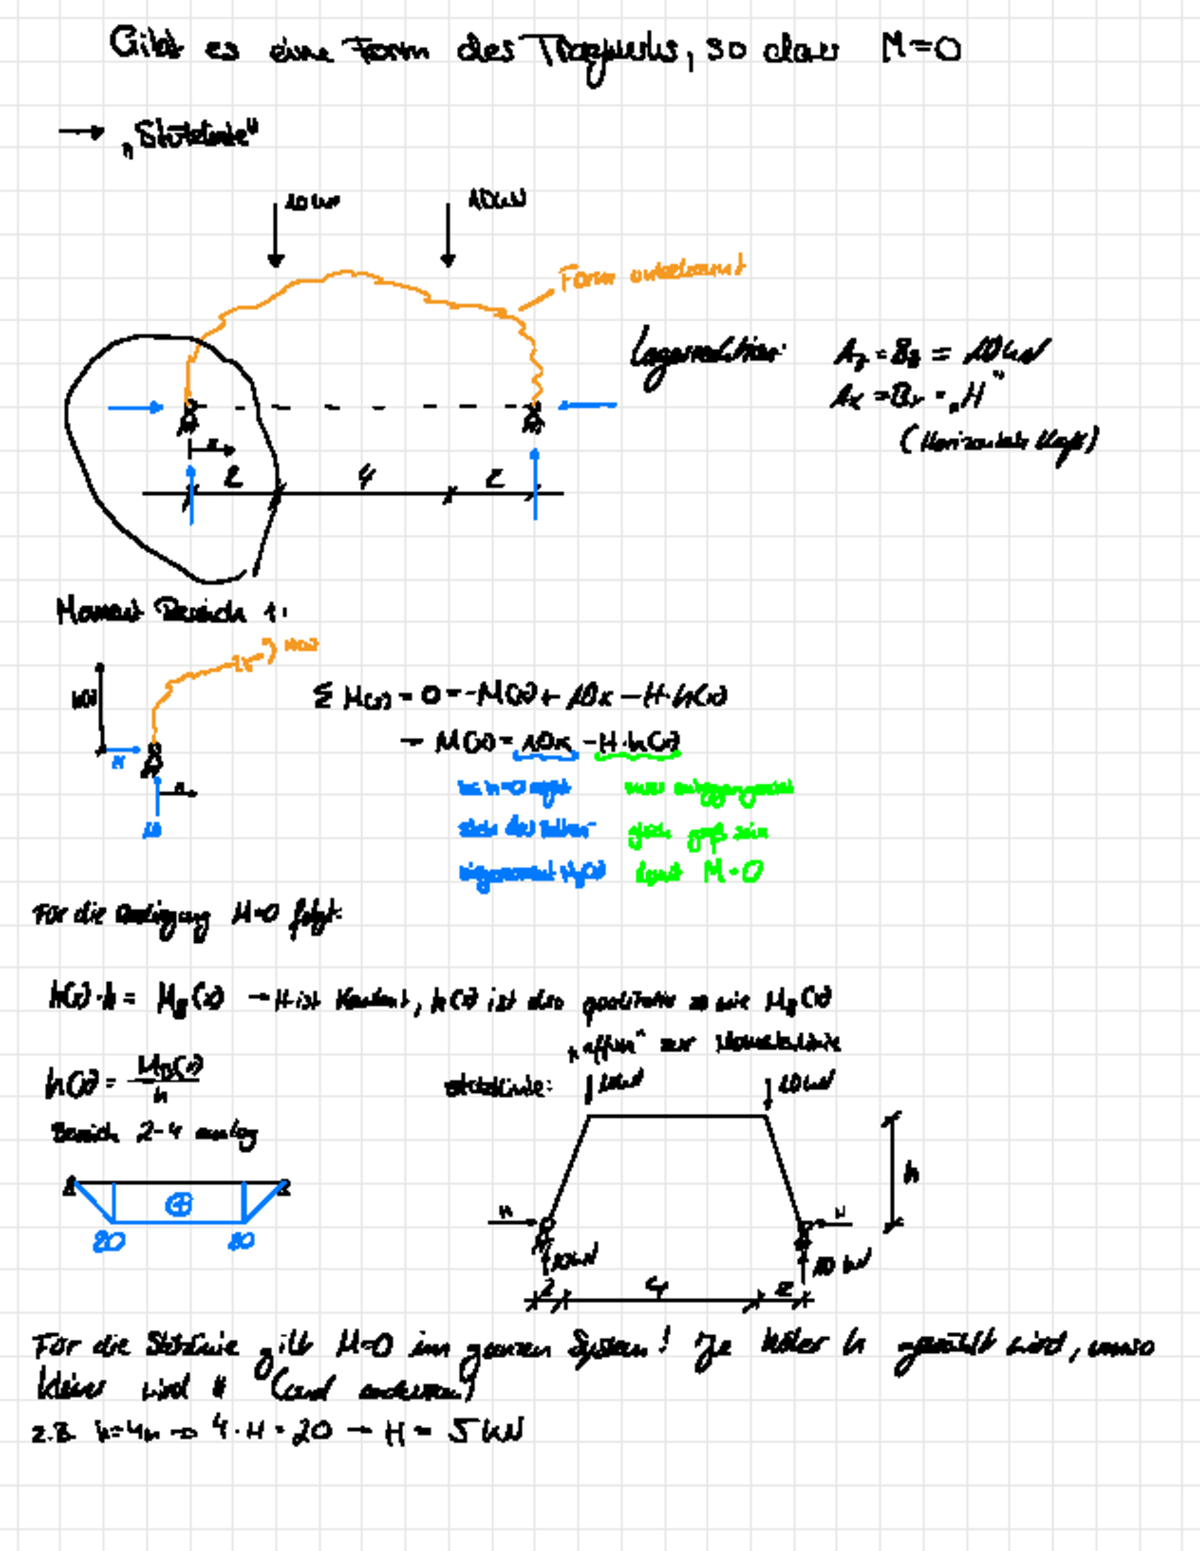 Gibt es eine Form des Tragwerks, so dass M=0
→ „Stützlinie"
10 kN 10 kN
Form unbekannt
Lagerreaktion: Az = Bz = 10 kN
Ax = Bx = „H"
(Horizontale Kraft)
x
2 4 2
Moment Bereich 1:
M(x)
h(x)
Σ M(x) = 0 = -M(x) + 10x - H·h(x)
→ M(x) = 10x - H·h(x)
H
x
10
bei h=0 ergibt
sich das Balken-
biegemoment MB(x)
muss entgegengesetzt
gleich groß sein
damit M=0
Für die Bedingung M=0 folgt:
h(x)·H = MB(x) → H ist Konstant, h(x) ist also qualitativ so wie MB(x)
„affin" zur Momentenlinie
h(x) = MB(x)/H
Stützlinie: 10kN 10kN
Bereich 2-4 analog
h
H H
20 20
10kN 10 kN
2 4 2
Für die Stützlinie gilt M=0 im ganzen System! Je höher h gewählt wird, umso
kleiner wird H (und andersrum)
z.B. h=4m → 4·H = 20 → H = 5 kN